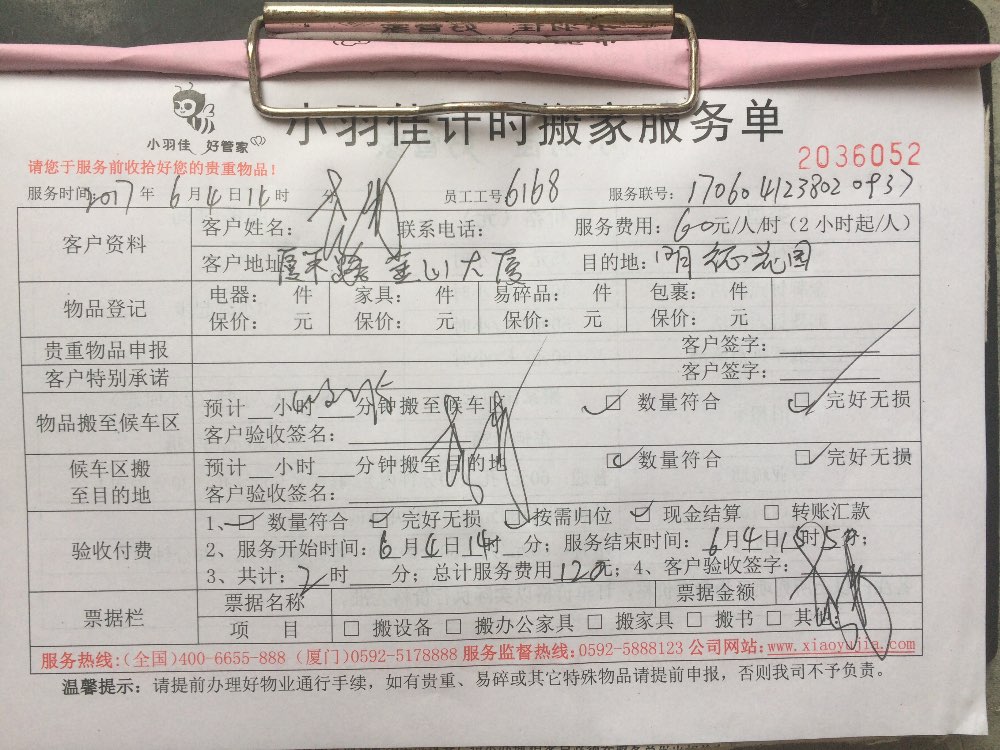 小羽佳计时搬家服务单
小羽佳 好管家
2036052
请您于服务前收拾好您的贵重物品！
服务时间：2017年6月4日14时 分 员工工号6168 服务联号：170604123802 0937
客户资料 客户姓名： 联系电话： 服务费用：60元/人/时（2小时起/人）
客户地址 厦禾路金山大厦 目的地：明征花园
物品登记 电器： 件 家具： 件 易碎品： 件 包裹： 件
保价： 元 保价： 元 保价： 元 保价： 元
贵重物品申报 客户签字：
客户特别承诺 客户签字：
物品搬至候车区 预计 小时 分钟搬至候车区 ☑ 数量符合 ☑ 完好无损
客户验收签名：
候车区搬至目的地 预计 小时 分钟搬至目的地 ☑ 数量符合 ☑ 完好无损
客户验收签名：
验收付费 1、☑ 数量符合 ☑ 完好无损 ☑ 按需归位 ☑ 现金结算 □ 转账汇款
2、服务开始时间：6月4日14时 分；服务结束时间：6月4日 时 分；
3、共计：2时 分；总计服务费用120元；4、客户验收签字：
票据栏 票据名称 票据金额
项 目 □ 搬设备 □ 搬办公家具 □ 搬家具 □ 搬书 □ 其他：
服务热线：(全国)400-6655-888 (厦门)0592-5178888 服务监督热线：0592-5888123 公司网站：www.xiaoyujia.com
温馨提示：请提前办理好物业通行手续，如有贵重、易碎或其它特殊物品请提前申报，否则我司不予负责。